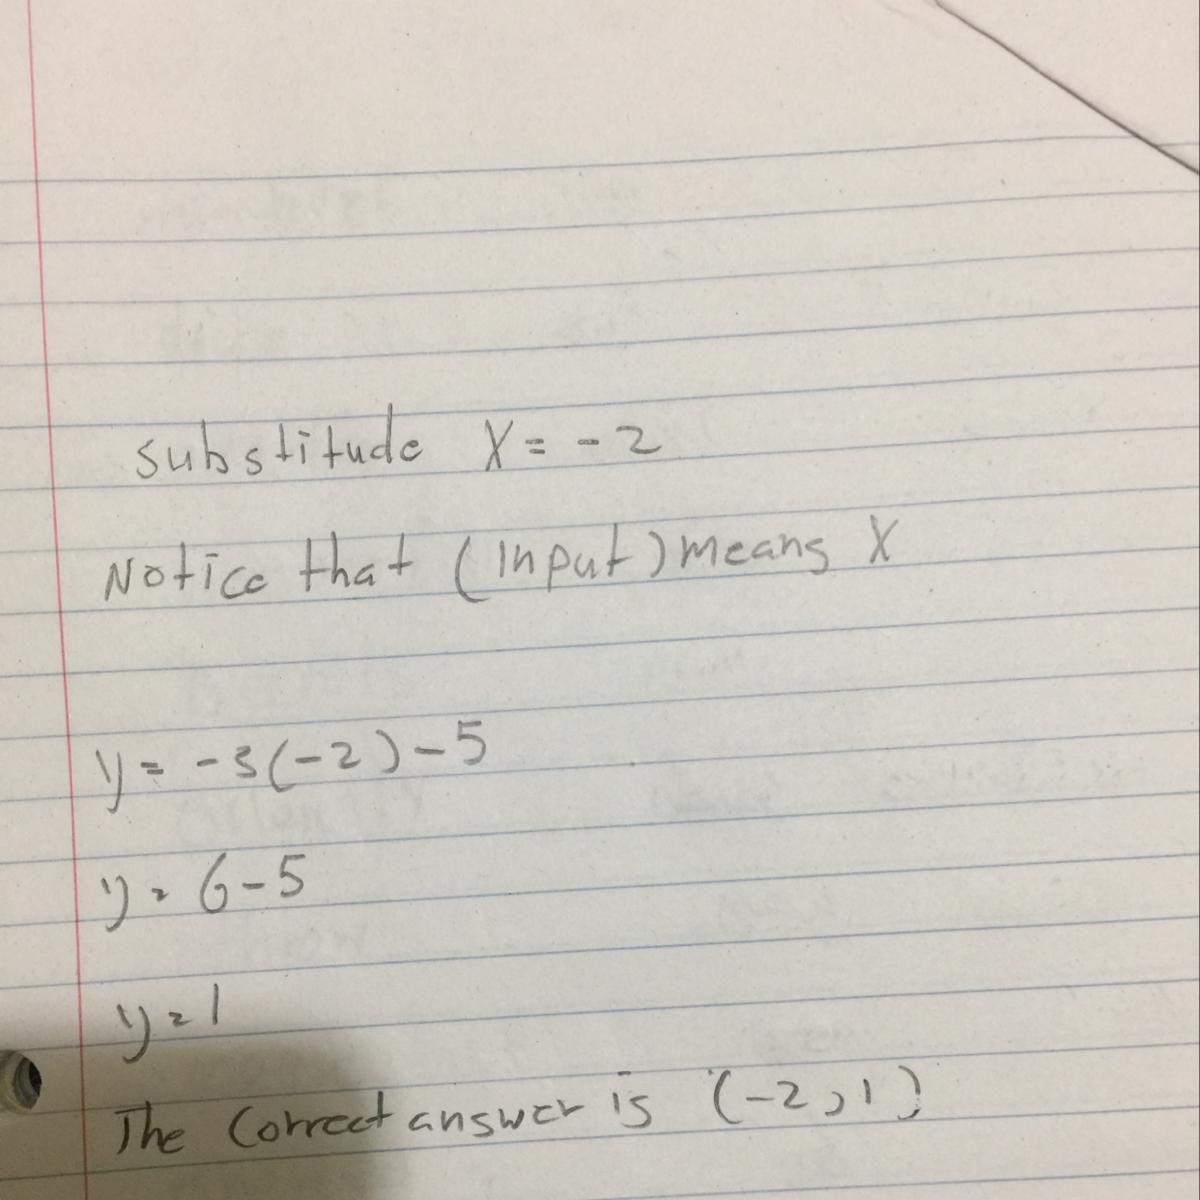 substitude X = -2
Notice that (Input) means X
y = -3(-2)-5
y = 6-5
y = 1
The Correct answer is (-2,1)